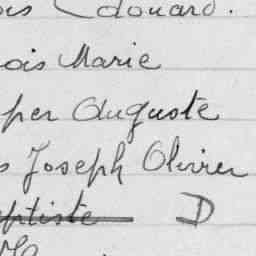 Edouard.
ois Marie
per Auguste
s Joseph Olivier
ptiste D